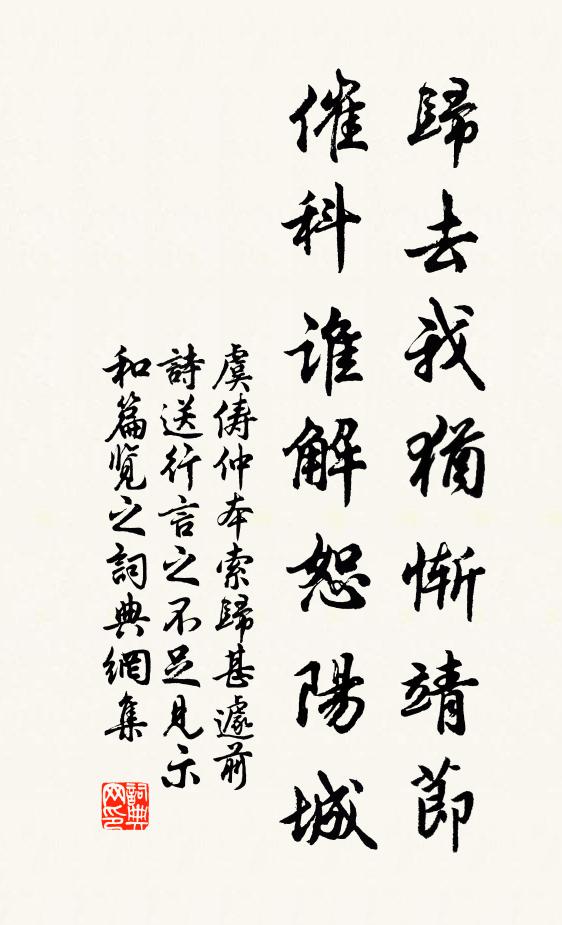 歸去我猶慚靖節
催科誰解恕陽城
虞儔仲本索歸甚遽前
詩送行言之不足見示
和篇覽之詞典網集
詞典网印